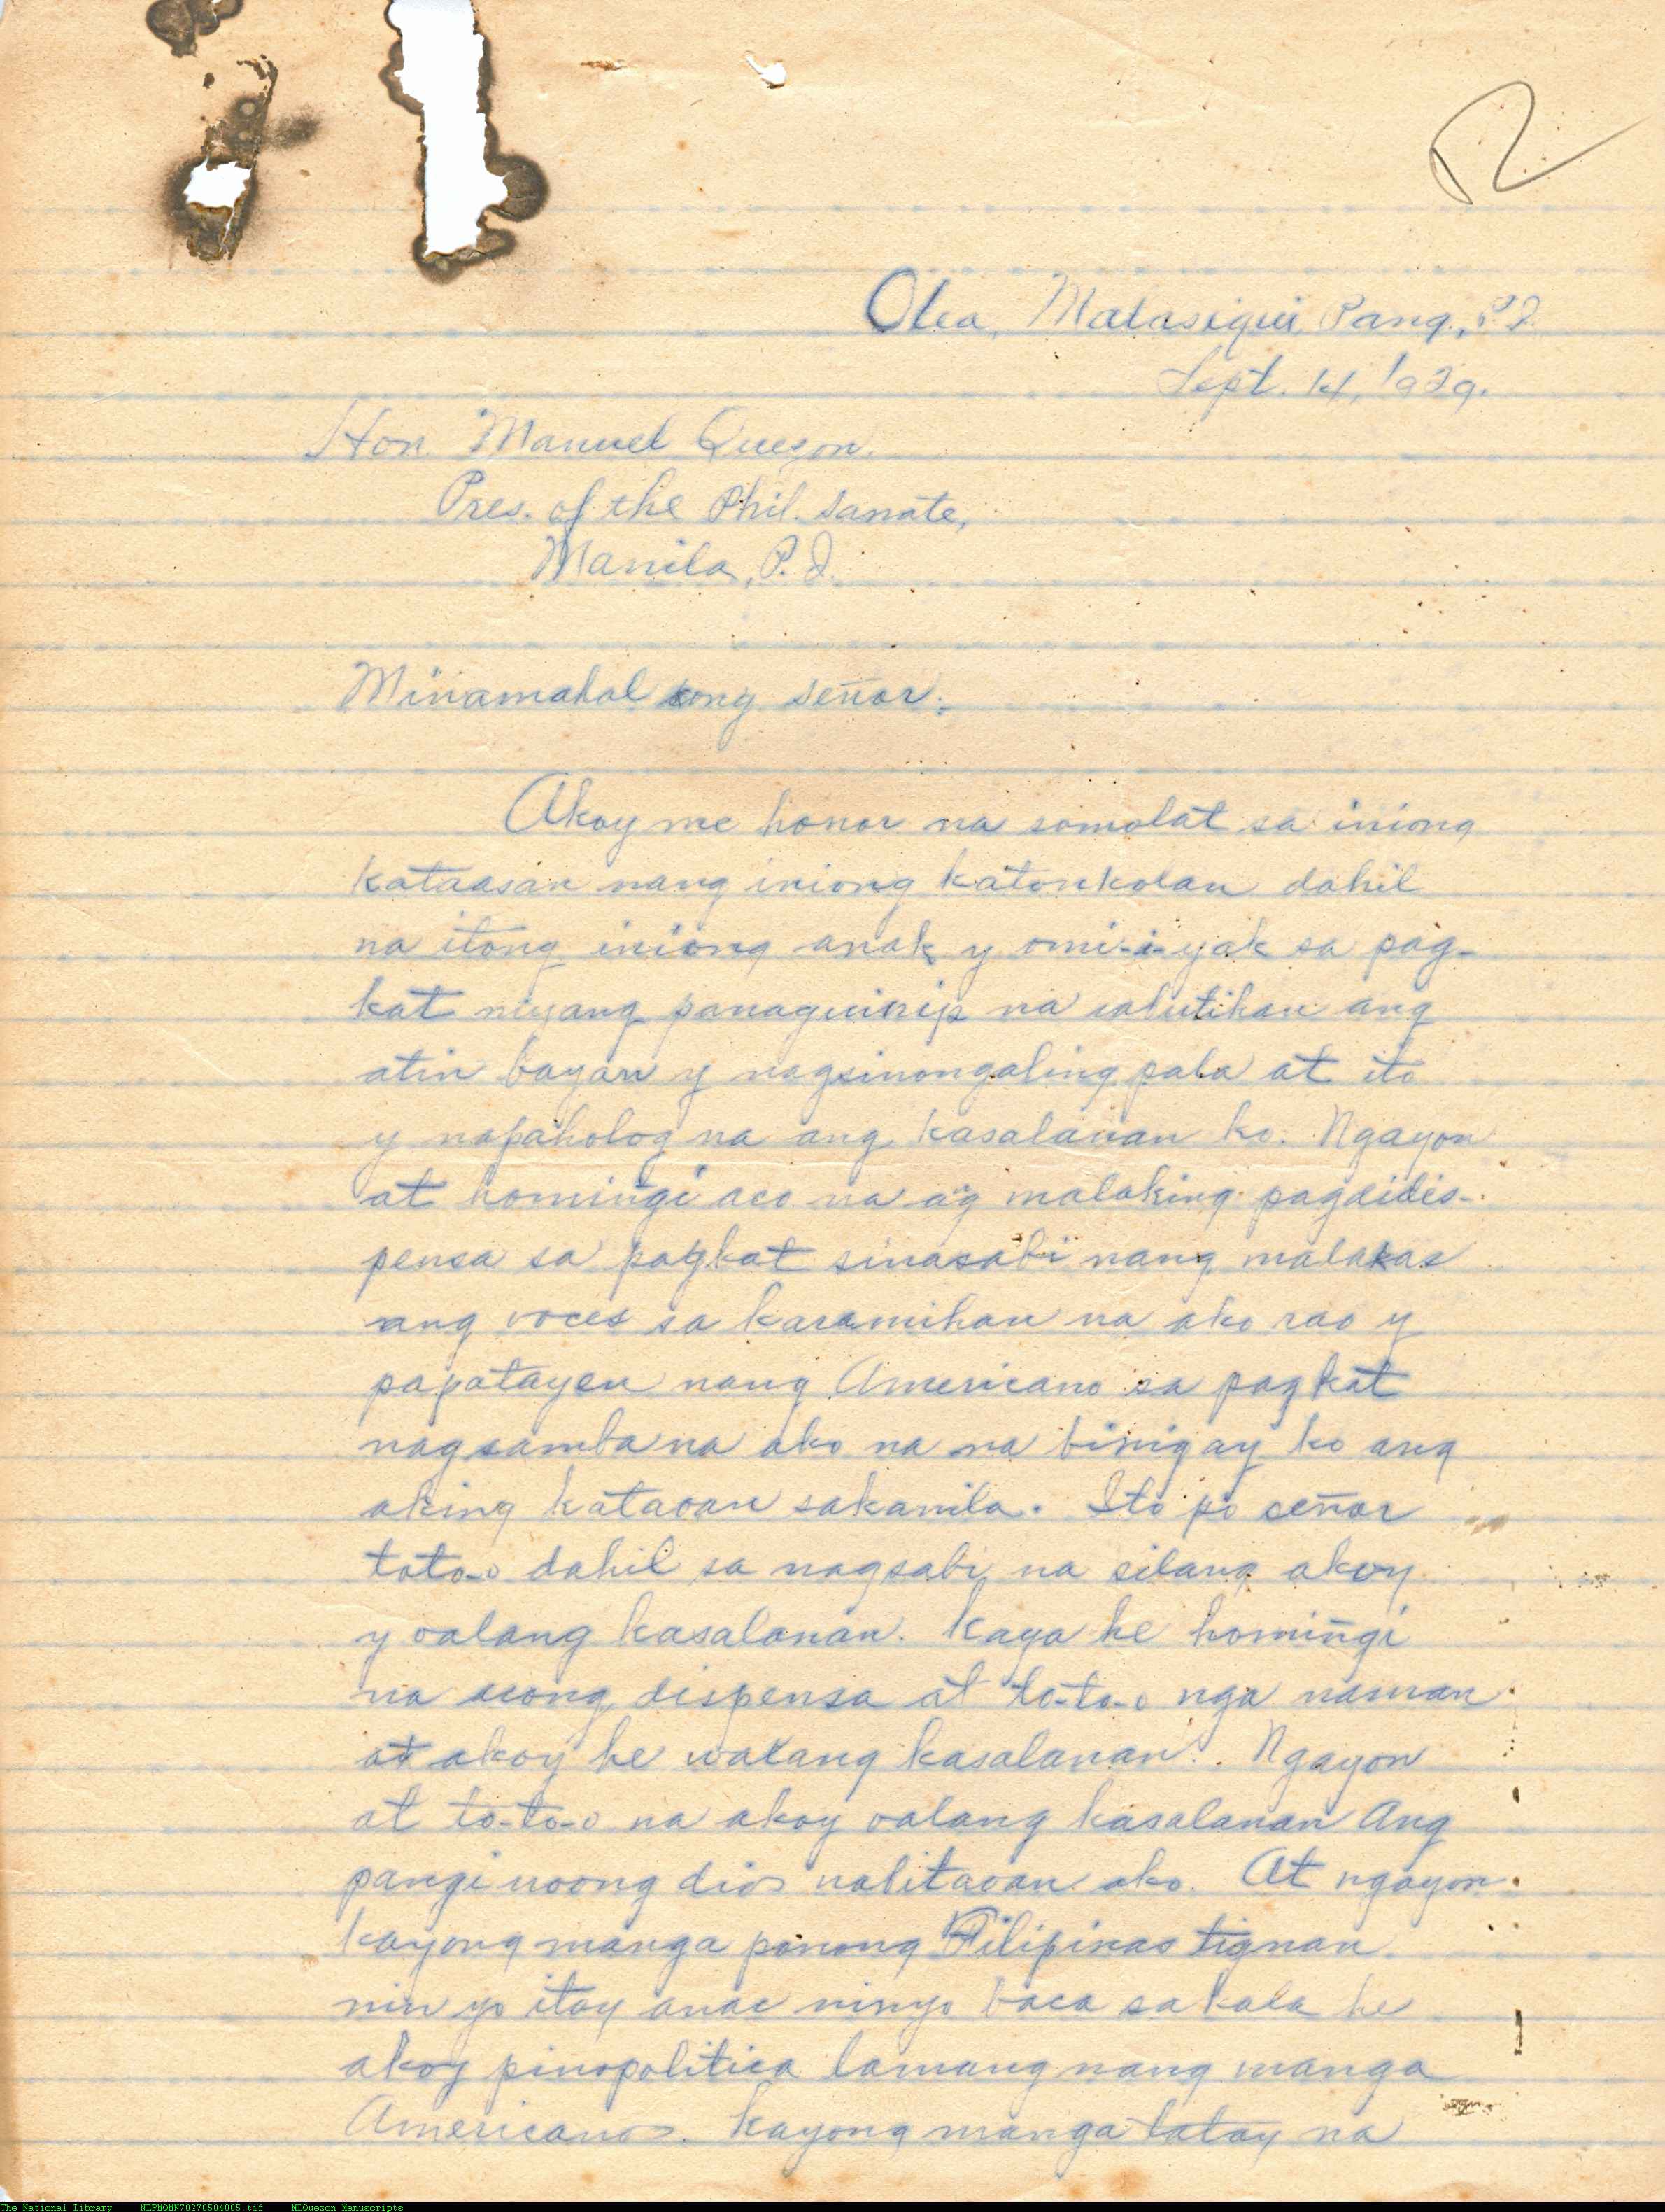 Olea, Malasiqui, Pang., P.I.
Sept. 14, 1929.
Hon. Manuel Quezon.
Pres. of the Phil. Sanate,
Manila, P.I.
Minamahal kong señor:
Akoy me honor na somolat sa iniong
kataasan nang iniong katonkolan dahil
na itong iniong anak y omi-i-yak sa pag-
kat niyang panaguinip na ang
atin bayan y nagsinongaling pala at ito
y napaholog na ang kasalanan ko. Ngayon
at homingi aco na ag malaking pagdidis-
pensa sa pagkat sinasabi nang malakas
ang voces sa karamihan na ako rao y
papatayen nang Americano sa pagkat
nagsamba na ako na na binigay ko ang
aking kataoan sakanila. Ito po señor
toto-o dahil sa nagsabi na silang akoy
y oalang kasalanan. Kaya he homingi
na acong dispensa at to-to-o nga naman
at akoy he walang kasalanan. Ngayon
at to-to-o na akoy oalang kasalanan Ang
panginoong dios nalitaoan ako. At ngayon
kayong manga ponong Filipinas tignan
nin yo itoy anac ninyo baca sakala he
akoy pinopolitica lamang nang manga
Americanos. Kayong manga tatay na
The National Library NLPMQMN70270504005.tif MLQuezon Manuscripts